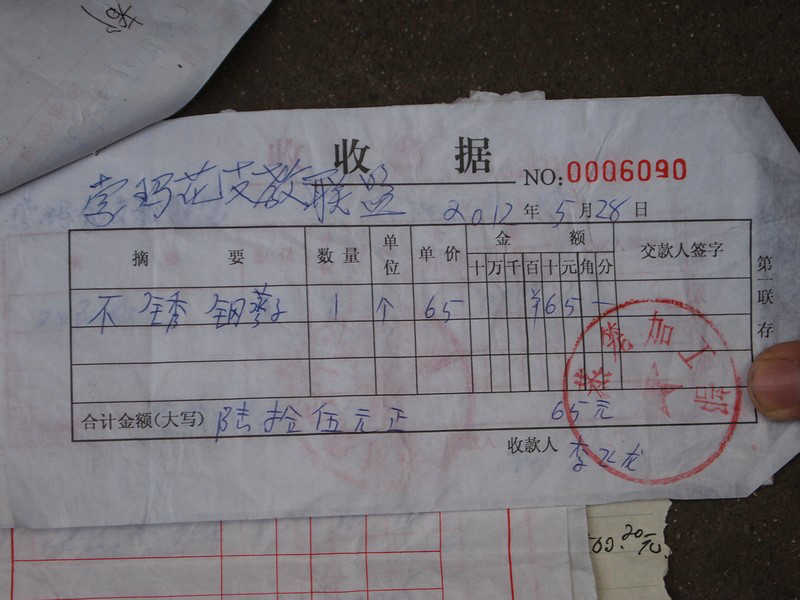 收 据
NO:0006090
索玛花支教联盟
2012年5月28日
摘 要 数量 单位 单价 金额 交款人签字
十万千百十元角分
不锈钢 1 个 65 ¥65 一
合计金额(大写) 陆拾伍元正 65元
收款人 李 龙
第 联 存
加工店